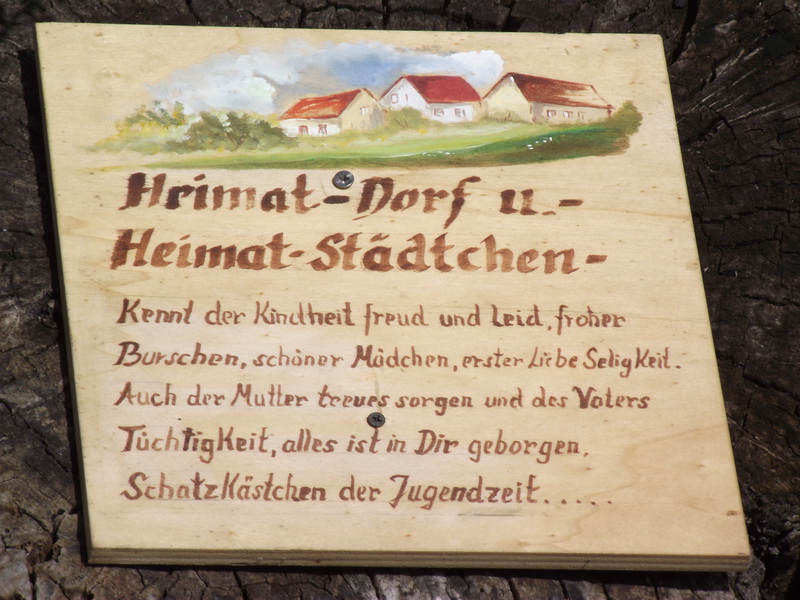 Heimat-Dorf u.-
Heimat-Städtchen-
Kennt der Kindheit freud und Leid, froher
Burschen, schöner Mädchen, erster Liebe Seligkeit.
Auch der Mutter treues sorgen und des Vaters
Tüchtigkeit, alles ist in Dir geborgen,
Schatzkästchen der Jugendzeit.....